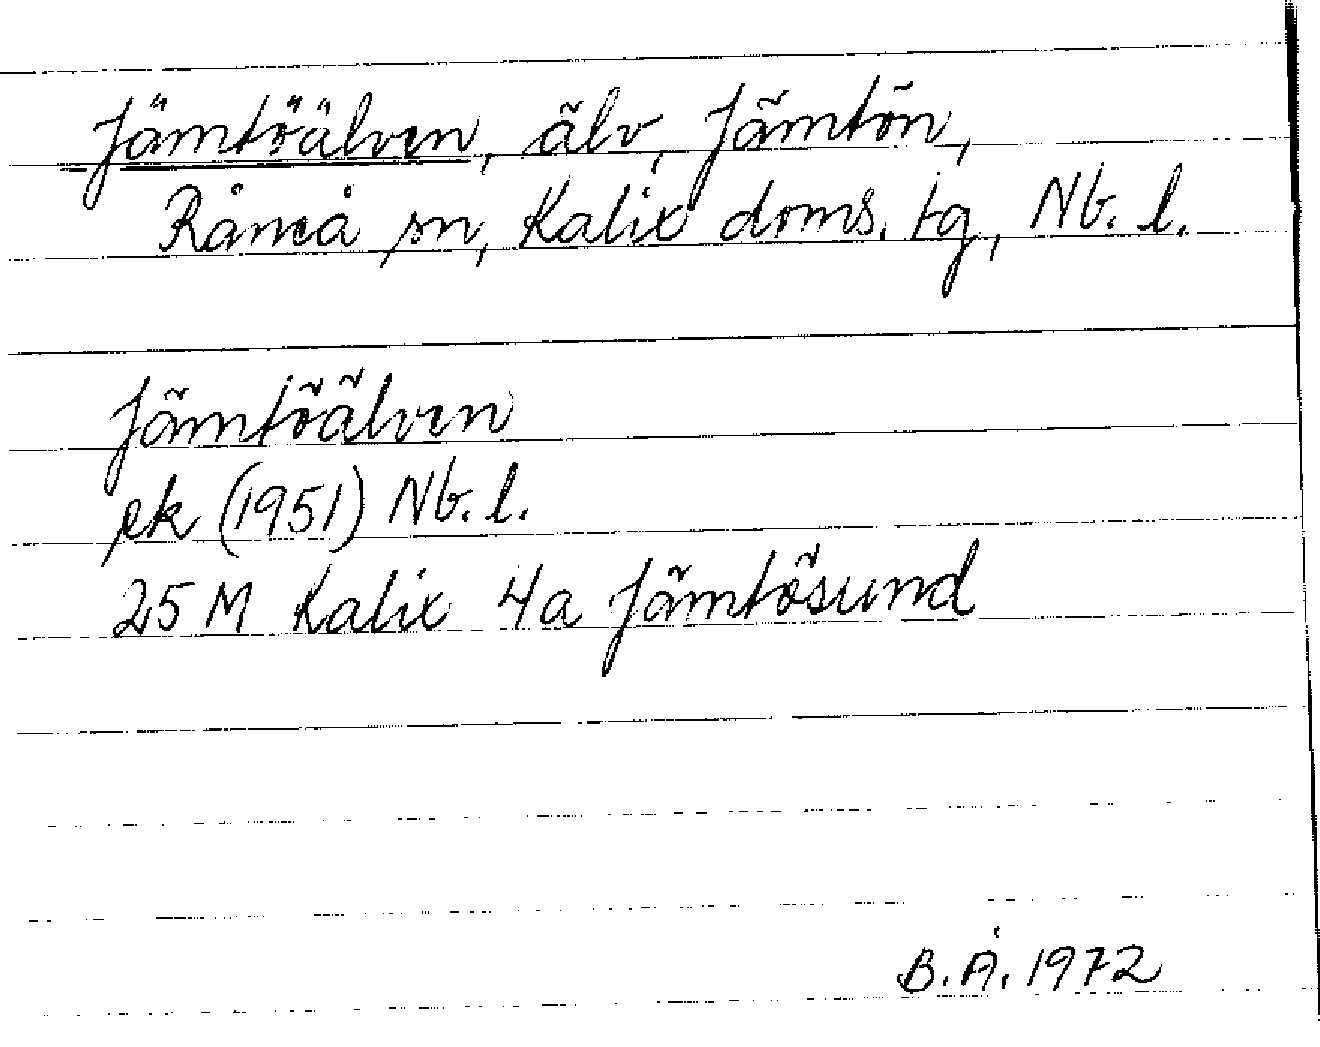 Jämtöälven, älv, Jämtön,
Råneå sn, Kalix doms. tg, Nb. l.
Jämtöälven
ek (1951) Nb. l.
25 M Kalix 4a Jämtösund
B.Å. 1972